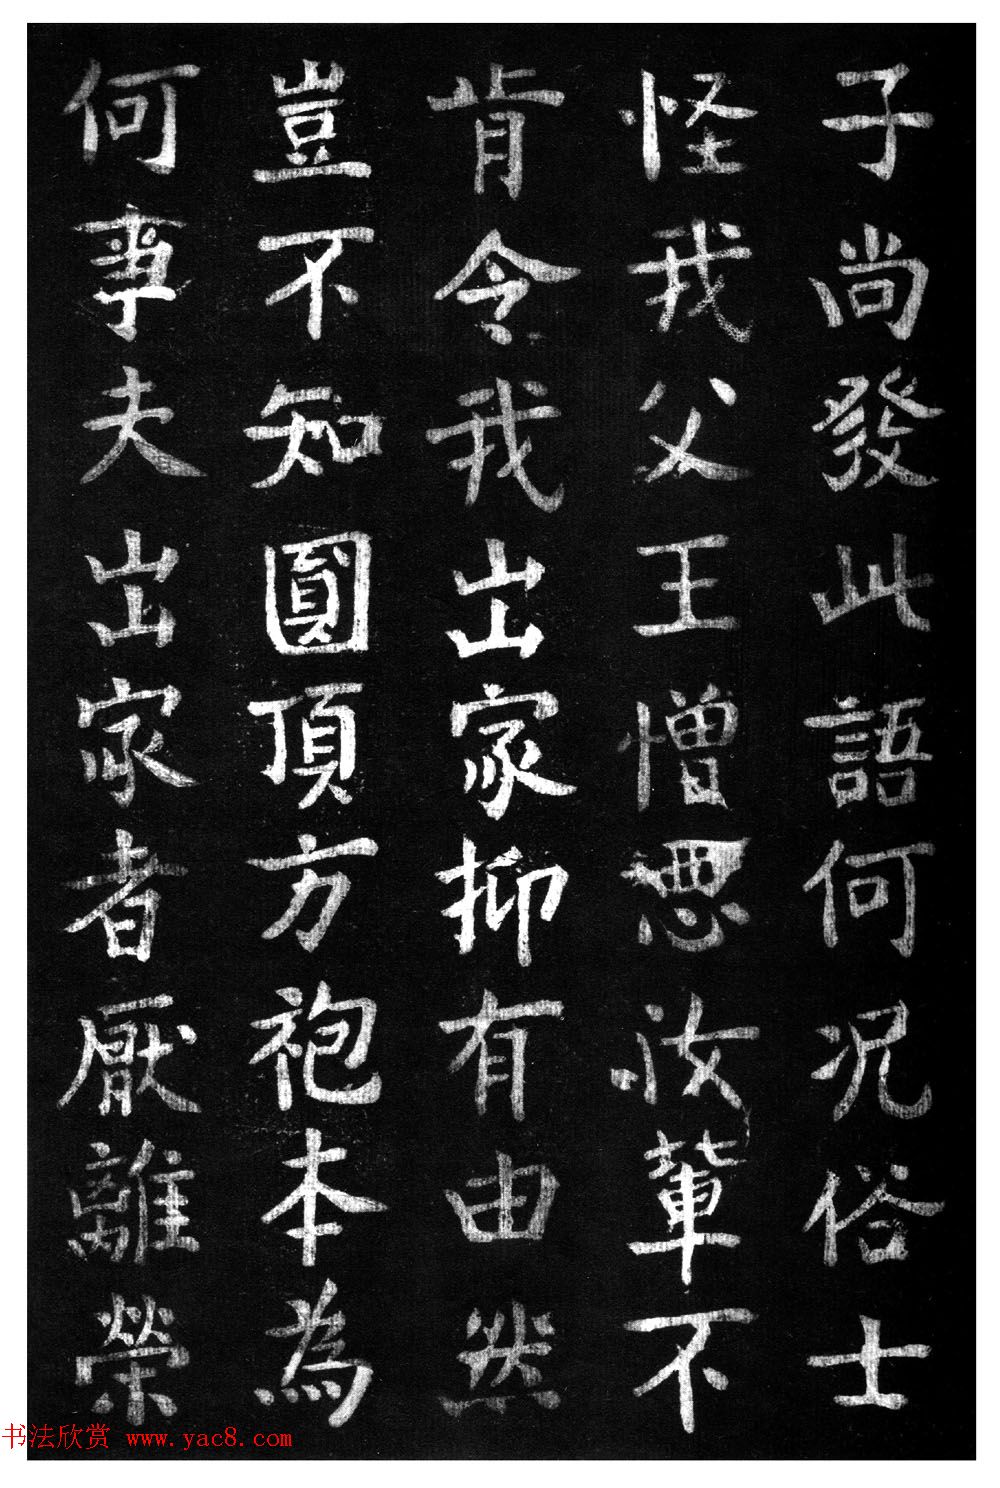 子尚發此語何況俗士
怪我父王憎惡汝輩不
肯令我出家抑有由然
豈不知圓頂方袍本為
何事夫出家者厭離榮
书法欣赏 www.yac8.com